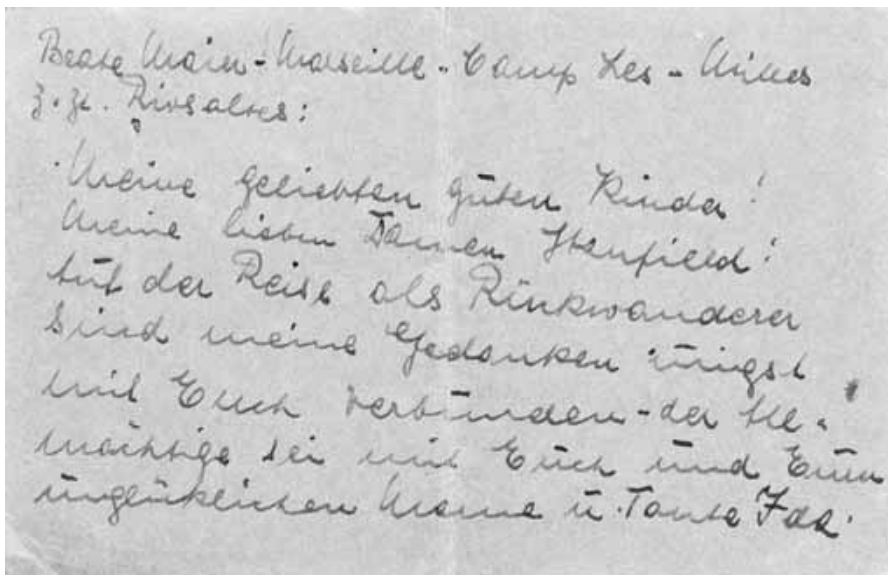 Beate Maier - Marseille - Camp Les - Milles
z. Zt. Rivsaltes:
Meine geliebten guten Kinder!
Meine lieben Damen
Auf der Reise als Rückwanderer
sind meine Gedanken innigst
mit Euch verbunden - der All-
mächtige sei mit Euch und Eurer
unglücklichen Mama u. Tante Ida.